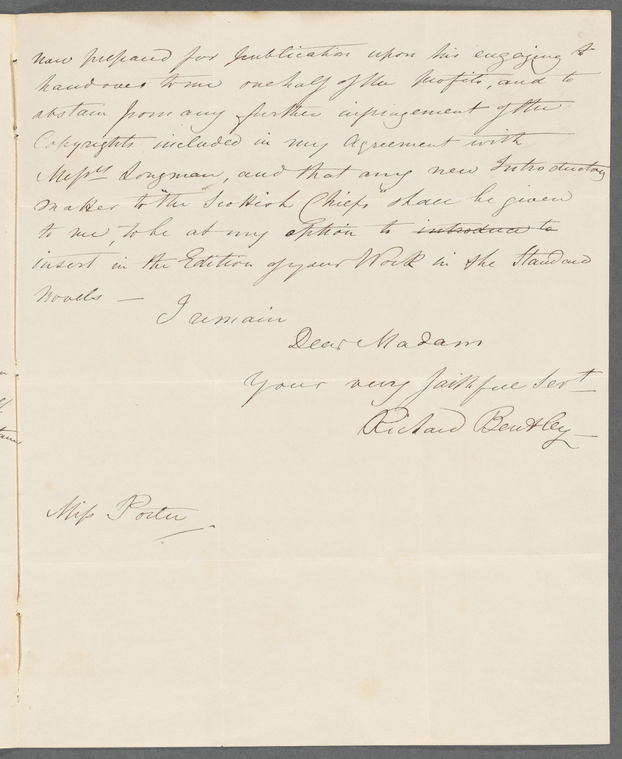 now prepared for publication upon his engaging to
hand over to me one half of the profits, and to
abstain from any further infringement of the
Copyrights included in my Agreement with
Messrs Longman, and that any new Introductory
matter to "the Scottish Chiefs" shall be given
to me, to be at my option to introduce to
insert in the Edition of your Work in the Standard
Novels —
I remain
Dear Madam
Your very faithful Sert
Richard Bentley
Miss Porter